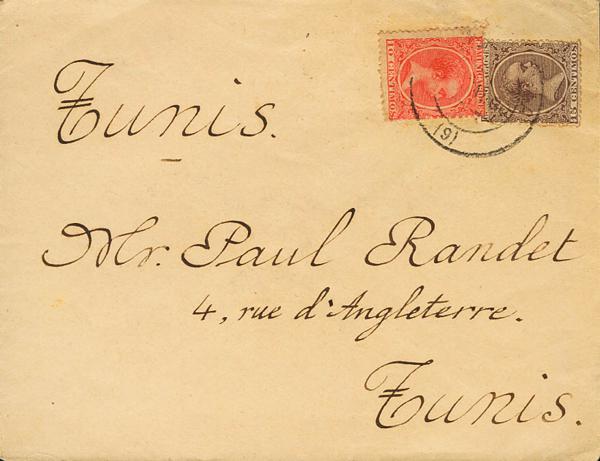 Tunis.
Mr. Paul Randet
4, rue d'Angleterre.
Tunis.
10 CENTIMOS
15 CENTIMOS
(9)